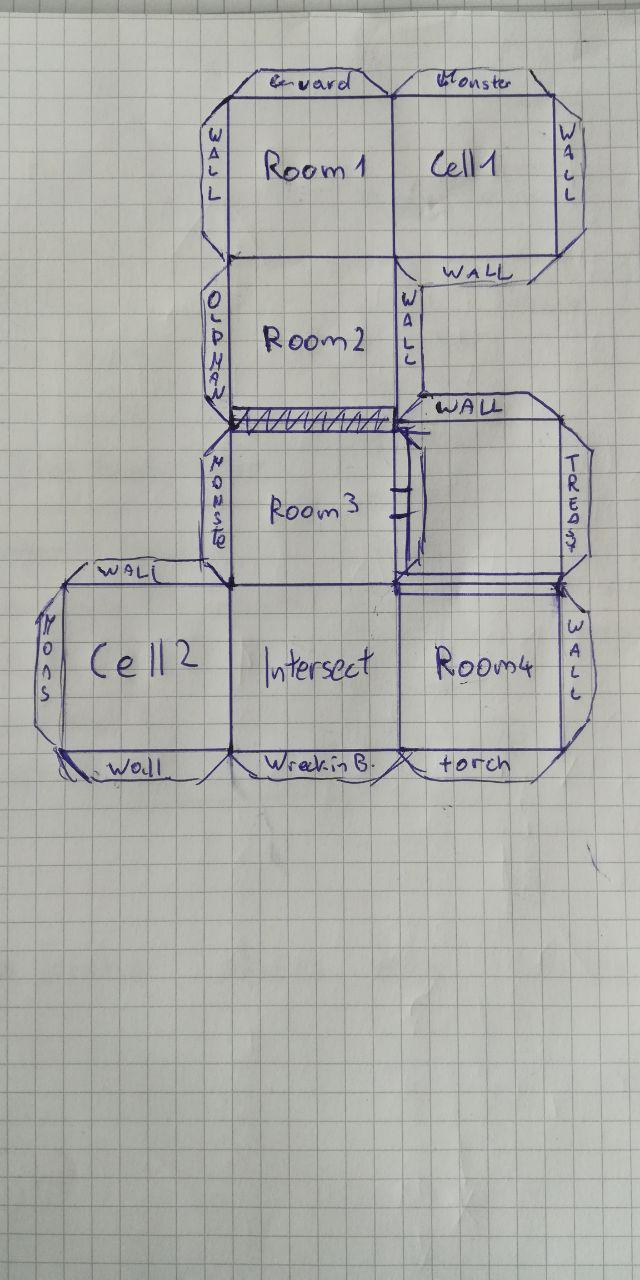 Guard Monster
WALL Room 1 Cell 1 WALL
WALL
OLDMAN Room 2 WALL
WALL
MONSTE Room 3 TREASY
WALL
Cell 2 Intersect Room 4 WALL
Wall Wreckin B. torch